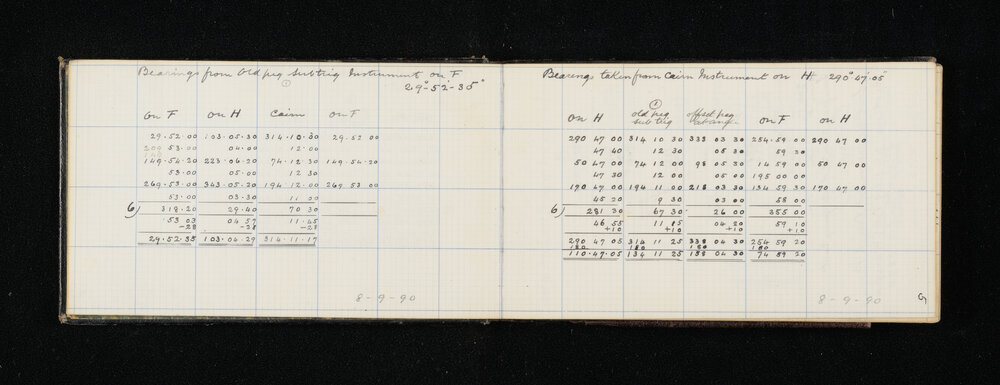 Bearings from Old peg Subtrig Instrument on F
①
29°-52-35"
on F on H Cairn on F
29.52.00 103.05.30 314.12.30 29.52 00
209 53.00 04.00 12.00
149.54.20 223.06.20 74.12.30 149.54.20
53.00 05.00 12 30
269.53.00 343.05.20 194.12.00 269 53 00
53.00 03.30 11 00
6) 318.20 29.40 70 30
53 03 04 57 11.45
-28 -28 -28
29.52.35 103.04.29 314.11.17
8-9-90
Bearings taken from Cairn Instrument on H 290° 47' 05"
①
on H old peg subtrig offset peg on F on H
290 47 00 314 10 30 338 03 30 254.59 00 290 47 00
47 40 12 30 05 30 59 20
50 47 00 74 12 00 98 05 30 14 59 00 50 47 00
47 30 12 00 05 00 195 00 00
170 47 00 194 11 00 218 03 30 134 59 30 170 47 00
45 20 9 30 03 00 58 00
6) 281 30 67 30 26 00 355 00
46 55 11 15 04 20 59 10
+10 +10 +10 +10
290 47 05 314 11 25 338 04 30 254 59 20
180 180 180 180
110.47.05 134 11 25 158 04 30 74 59 20
8-9-90
9